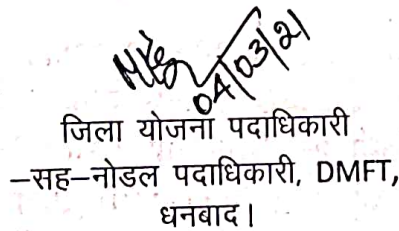 04/03/21
जिला योजना पदाधिकारी
-सह-नोडल पदाधिकारी, DMFT,
धनबाद।